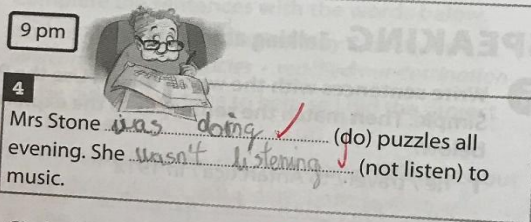 9 pm
SPEAKING
4
Mrs Stone was doing (do) puzzles all
evening. She wasn't listening (not listen) to
music.